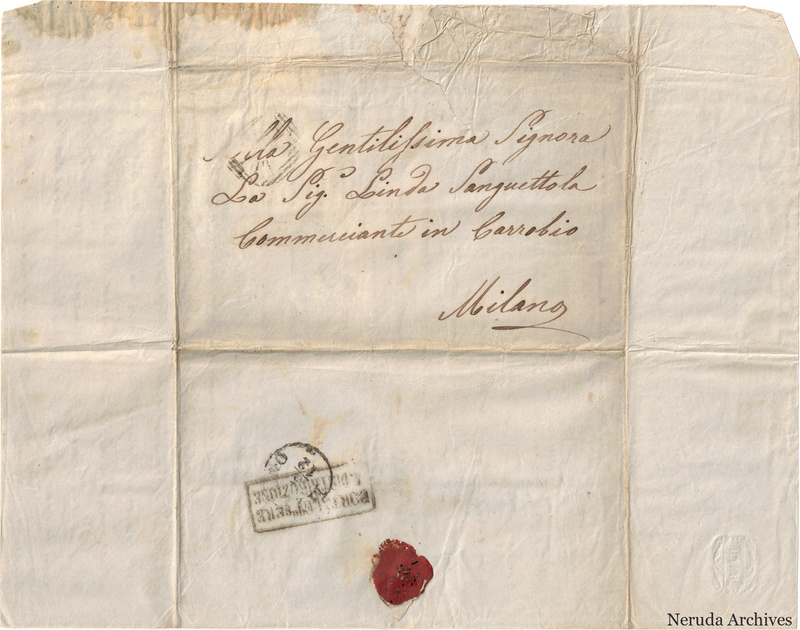 Alla Gentilissima Signora
La Sig.a Linda Sanguettola
Commerciante in Carrobio
Milano
PORTALETTERE
DISTRIBUZIONE
Neruda Archives